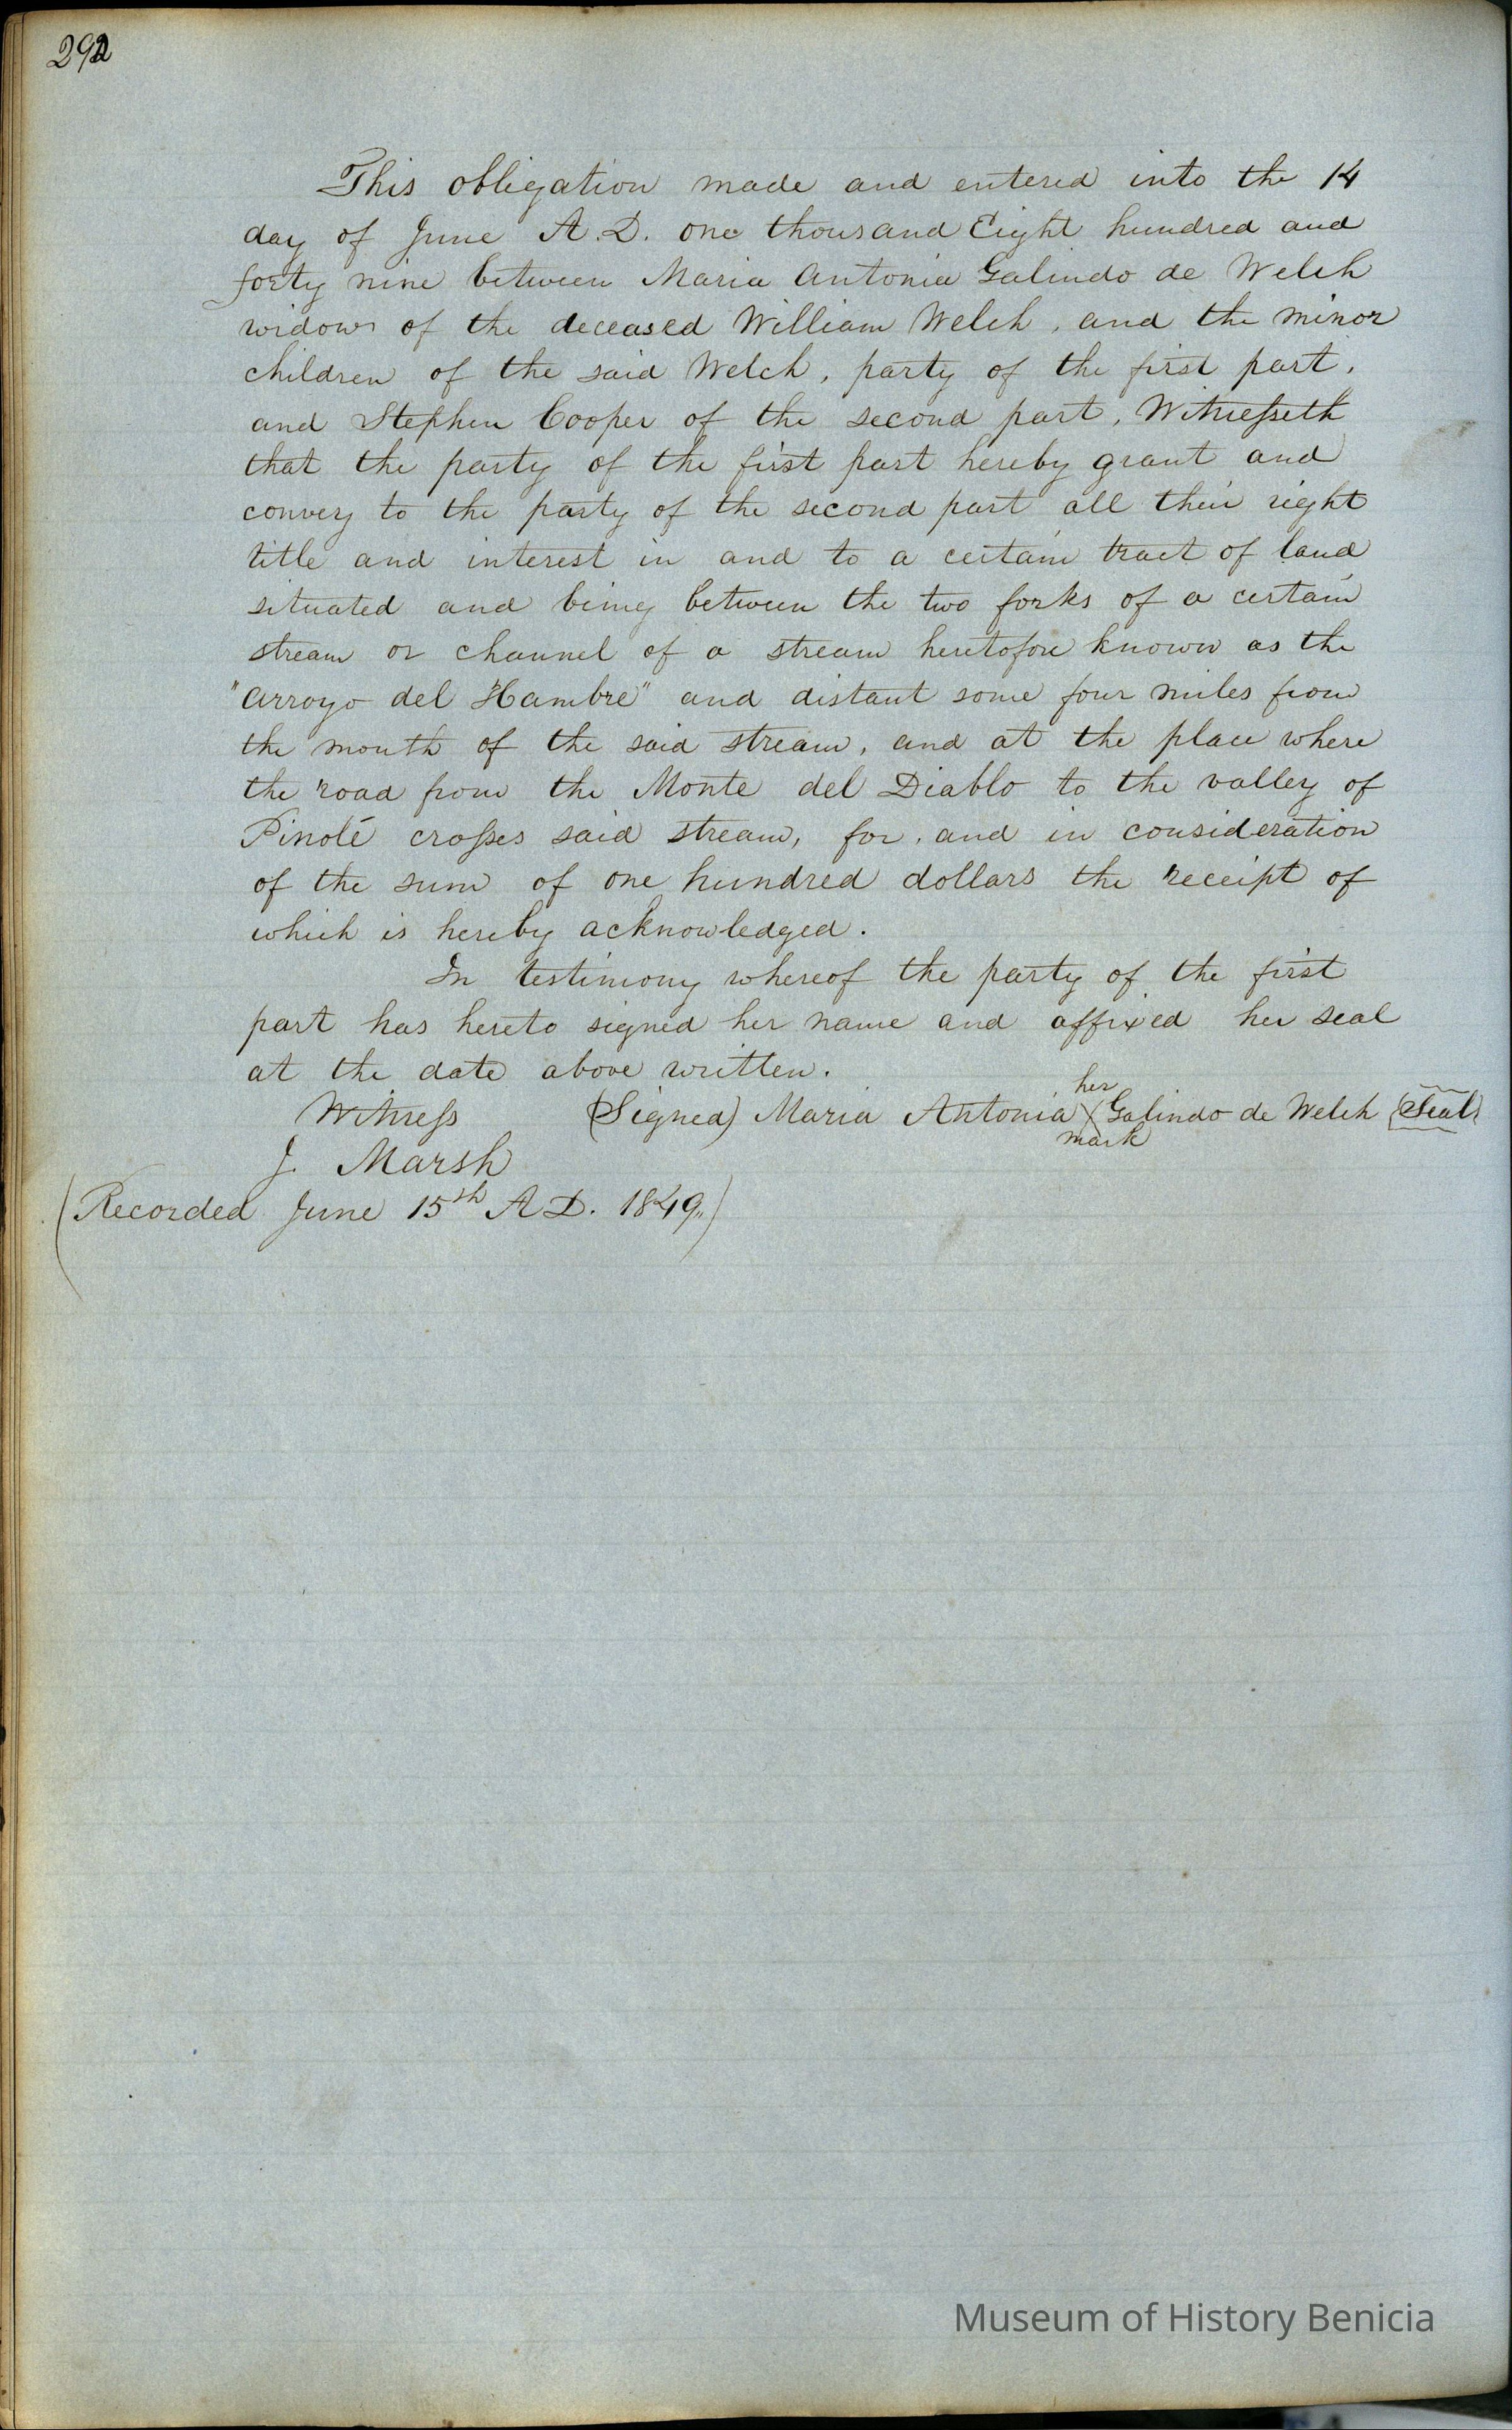 292
This obligation made and entered into the 14
day of June A.D. one thousand Eight hundred and
forty nine between Maria Antonia Galindo de Welch
widow of the deceased William Welch, and the minor
children of the said Welch, party of the first part,
and Stephen Cooper of the second part, Witnesseth
that the party of the first part hereby grant and
convey to the party of the second part all their right
title and interest in and to a certain tract of land
situated and being between the two forks of a certain
stream or channel of a stream heretofore known as the
"Arroyo del Hambre" and distant some four miles from
the mouth of the said stream, and at the place where
the road from the Monte del Diablo to the valley of
Pinolé crosses said stream, for, and in consideration
of the sum of one hundred dollars the receipt of
which is hereby acknowledged.
In testimony whereof the party of the first
part has hereto signed her name and affixed her seal
at the date above written.
her
Witness (Signed) Maria Antonia X Galindo de Welch (Seal)
mark
J. Marsh
(Recorded June 15th A.D. 1849.)
Museum of History Benicia